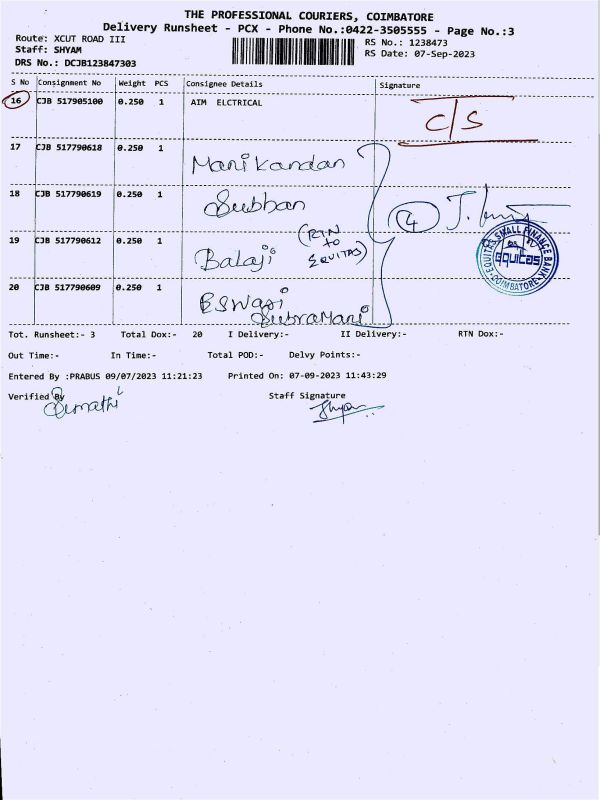 THE PROFESSIONAL COURIERS, COIMBATORE
Delivery Runsheet - PCX - Phone No.:0422-3505555 - Page No.:3
Route: XCUT ROAD III
Staff: SHYAM
DRS No.: DCJB123847303
RS No.: 1238473
RS Date: 07-Sep-2023
S No Consignment No Weight PCS Consignee Details Signature
16 CJB 517905100 0.250 1 AIM ELCTRICAL C/S
17 CJB 517790618 0.250 1 Manikandan
18 CJB 517790619 0.250 1 Subhan
4
19 CJB 517790612 0.250 1 Balaji (RTN to EQUITAS)
EQUITAS SMALL FINANCE BANK
equitas
COIMBATORE
20 CJB 517790609 0.250 1 ESwari
SubraMani
Tot. Runsheet:- 3 Total Dox:- 20 I Delivery:- II Delivery:- RTN Dox:-
Out Time:- In Time:- Total POD:- Delvy Points:-
Entered By :PRABUS 09/07/2023 11:21:23 Printed On: 07-09-2023 11:43:29
Verified By Staff Signature
Sumathi Shyam